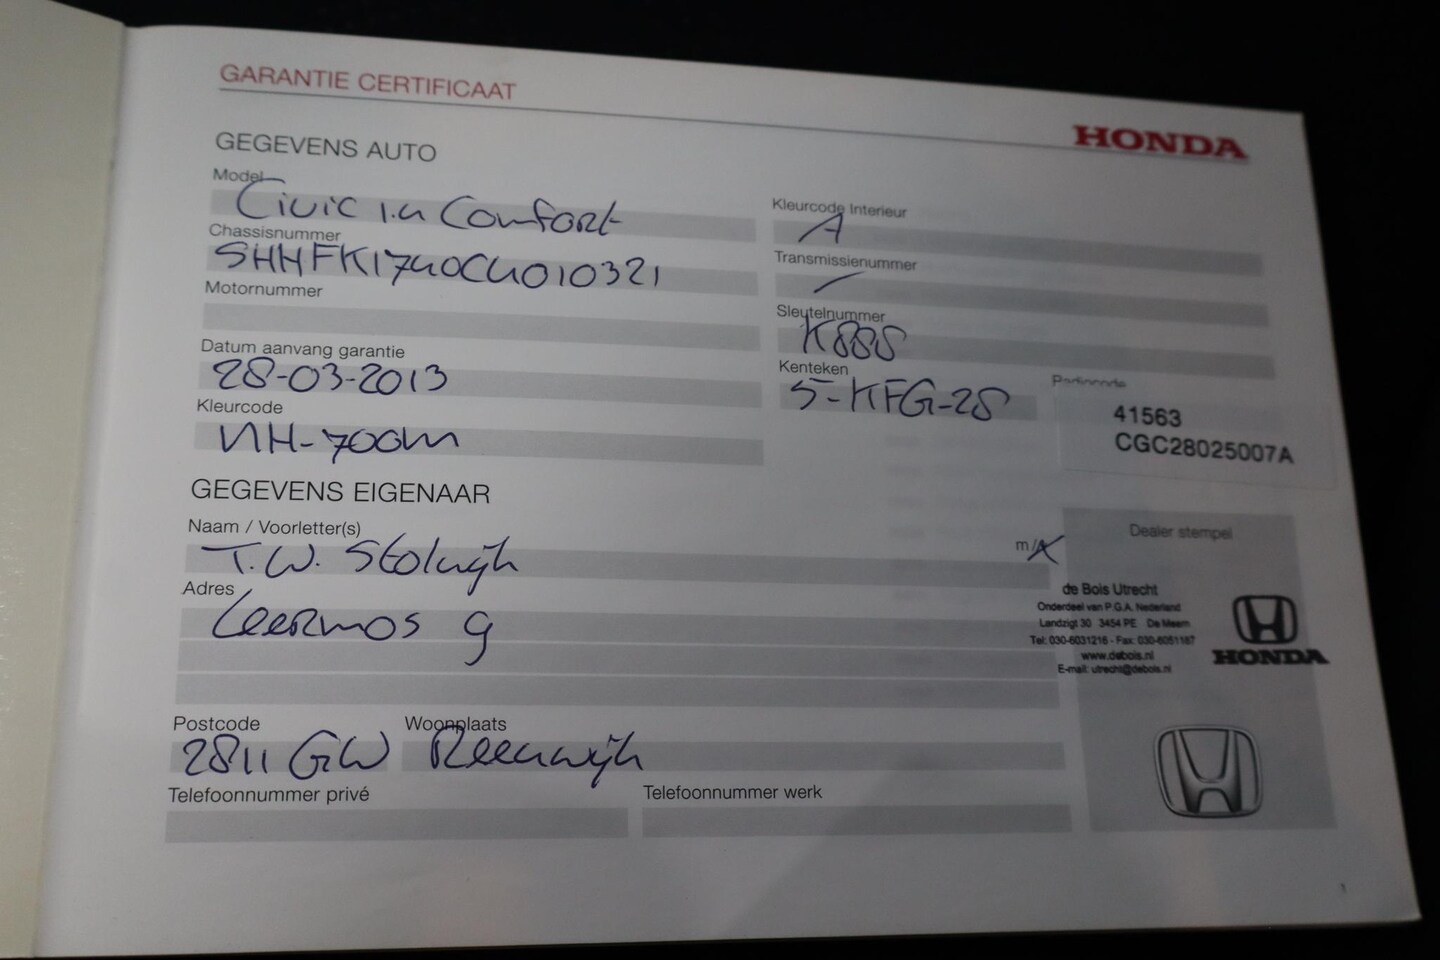 GARANTIE CERTIFICAAT
HONDA
GEGEVENS AUTO
Model
Civic 1.4 Comfort
Kleurcode Interieur
A
Chassisnummer
SHHFK1740CU010321
Transmissienummer
Motornummer
Sleutelnummer
K888
Datum aanvang garantie
28-03-2013
Kenteken
5-KFG-28
Radiocode
41563
CGC28025007A
Kleurcode
NH-700M
GEGEVENS EIGENAAR
Naam / Voorletter(s)
T.W. Stolwijk
m/
Dealer stempel
Adres
Leermos 9
de Bois Utrecht
Onderdeel van P.G.A. Nederland
Landzigt 30 3454 PE De Meern
Tel: 030-6031216 - Fax: 030-6051187
www.debois.nl
E-mail: utrecht@debois.nl
HONDA
Postcode
2811 GW
Woonplaats
Reeuwijk
Telefoonnummer privé
Telefoonnummer werk
1